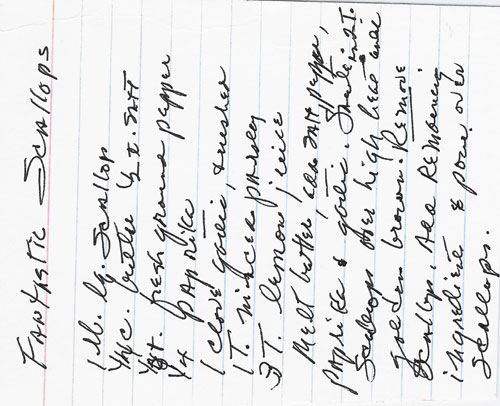 FANTASTIC SCALLOPS
1 lb. lg. Scallop
1/4 C. butter 1/2 t. salt
1/8 t. fresh ground pepper
1/4 PAPRIKA
1 clove garlic, crushed
1 T. minced parsley
3 T. lemon juice
Melt butter, add salt, pepper,
paprika & garlic. Sauté
Scallops over high heat until
golden brown. Remove
Scallops. Add REMAINING
ingredient & pour over
scallops.